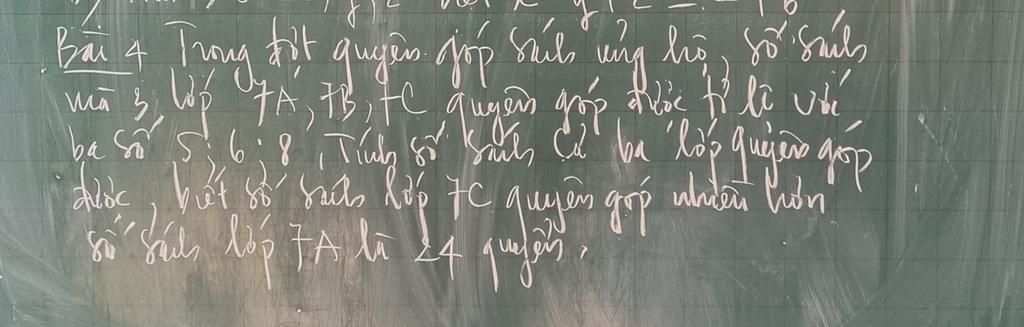 Bài 4 Trong đợt quyên góp sách ủng hộ, số sách
mà 3 lớp 7A, 7B, 7C quyên góp được tỉ lệ với
ba số 5; 6; 8, Tính số sách cả ba lớp quyên góp
được, biết số sách lớp 7C quyên góp nhiều hơn
số sách lớp 7A là 24 quyển,